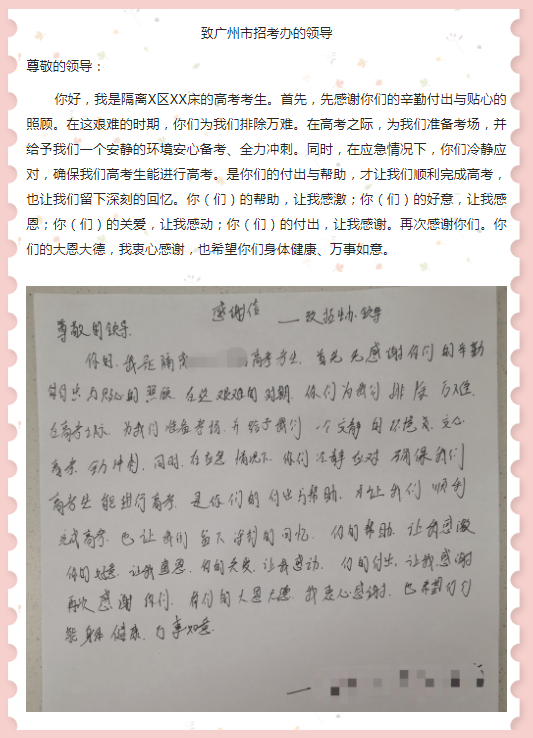 致广州市招考办的领导
尊敬的领导：
你好，我是隔离X区XX床的高考考生。首先，先感谢你们的辛勤付出与贴心的
照顾。在这艰难的时期，你们为我们排除万难。在高考之际，为我们准备考场，并
给予我们一个安静的环境安心备考、全力冲刺。同时，在应急情况下，你们冷静应
对，确保我们高考生能进行高考。是你们的付出与帮助，才让我们顺利完成高考，
也让我们留下深刻的回忆。你（们）的帮助，让我感激；你（们）的好意，让我感
恩；你（们）的关爱，让我感动；你（们）的付出，让我感谢。再次感谢你们。你
们的大恩大德，我衷心感谢，也希望你们身体健康、万事如意。
感谢信
——致招生办领导
尊敬的领导
你好，我是隔离 高考考生，首先先感谢你们的辛勤
的付出与贴心的照顾 在这艰难的时期，你们为我们排除万难，
在高考之际，为我们准备考场，并给予我们一个安静的环境 安心
备考 全力冲刺，同时，在应急情况下，你们冷静应对 确保我们
高考生能进行高考，是你们的付出与帮助，才让我们顺利
完成高考，也让我们留下深刻的回忆，你的帮助，让我感激
你的好意，让我感恩，你的关爱，让我感动，你的付出，让我感谢
再次感谢你们，你们的大恩大德，我衷心感谢，也希望你们
能身体健康，万事如意